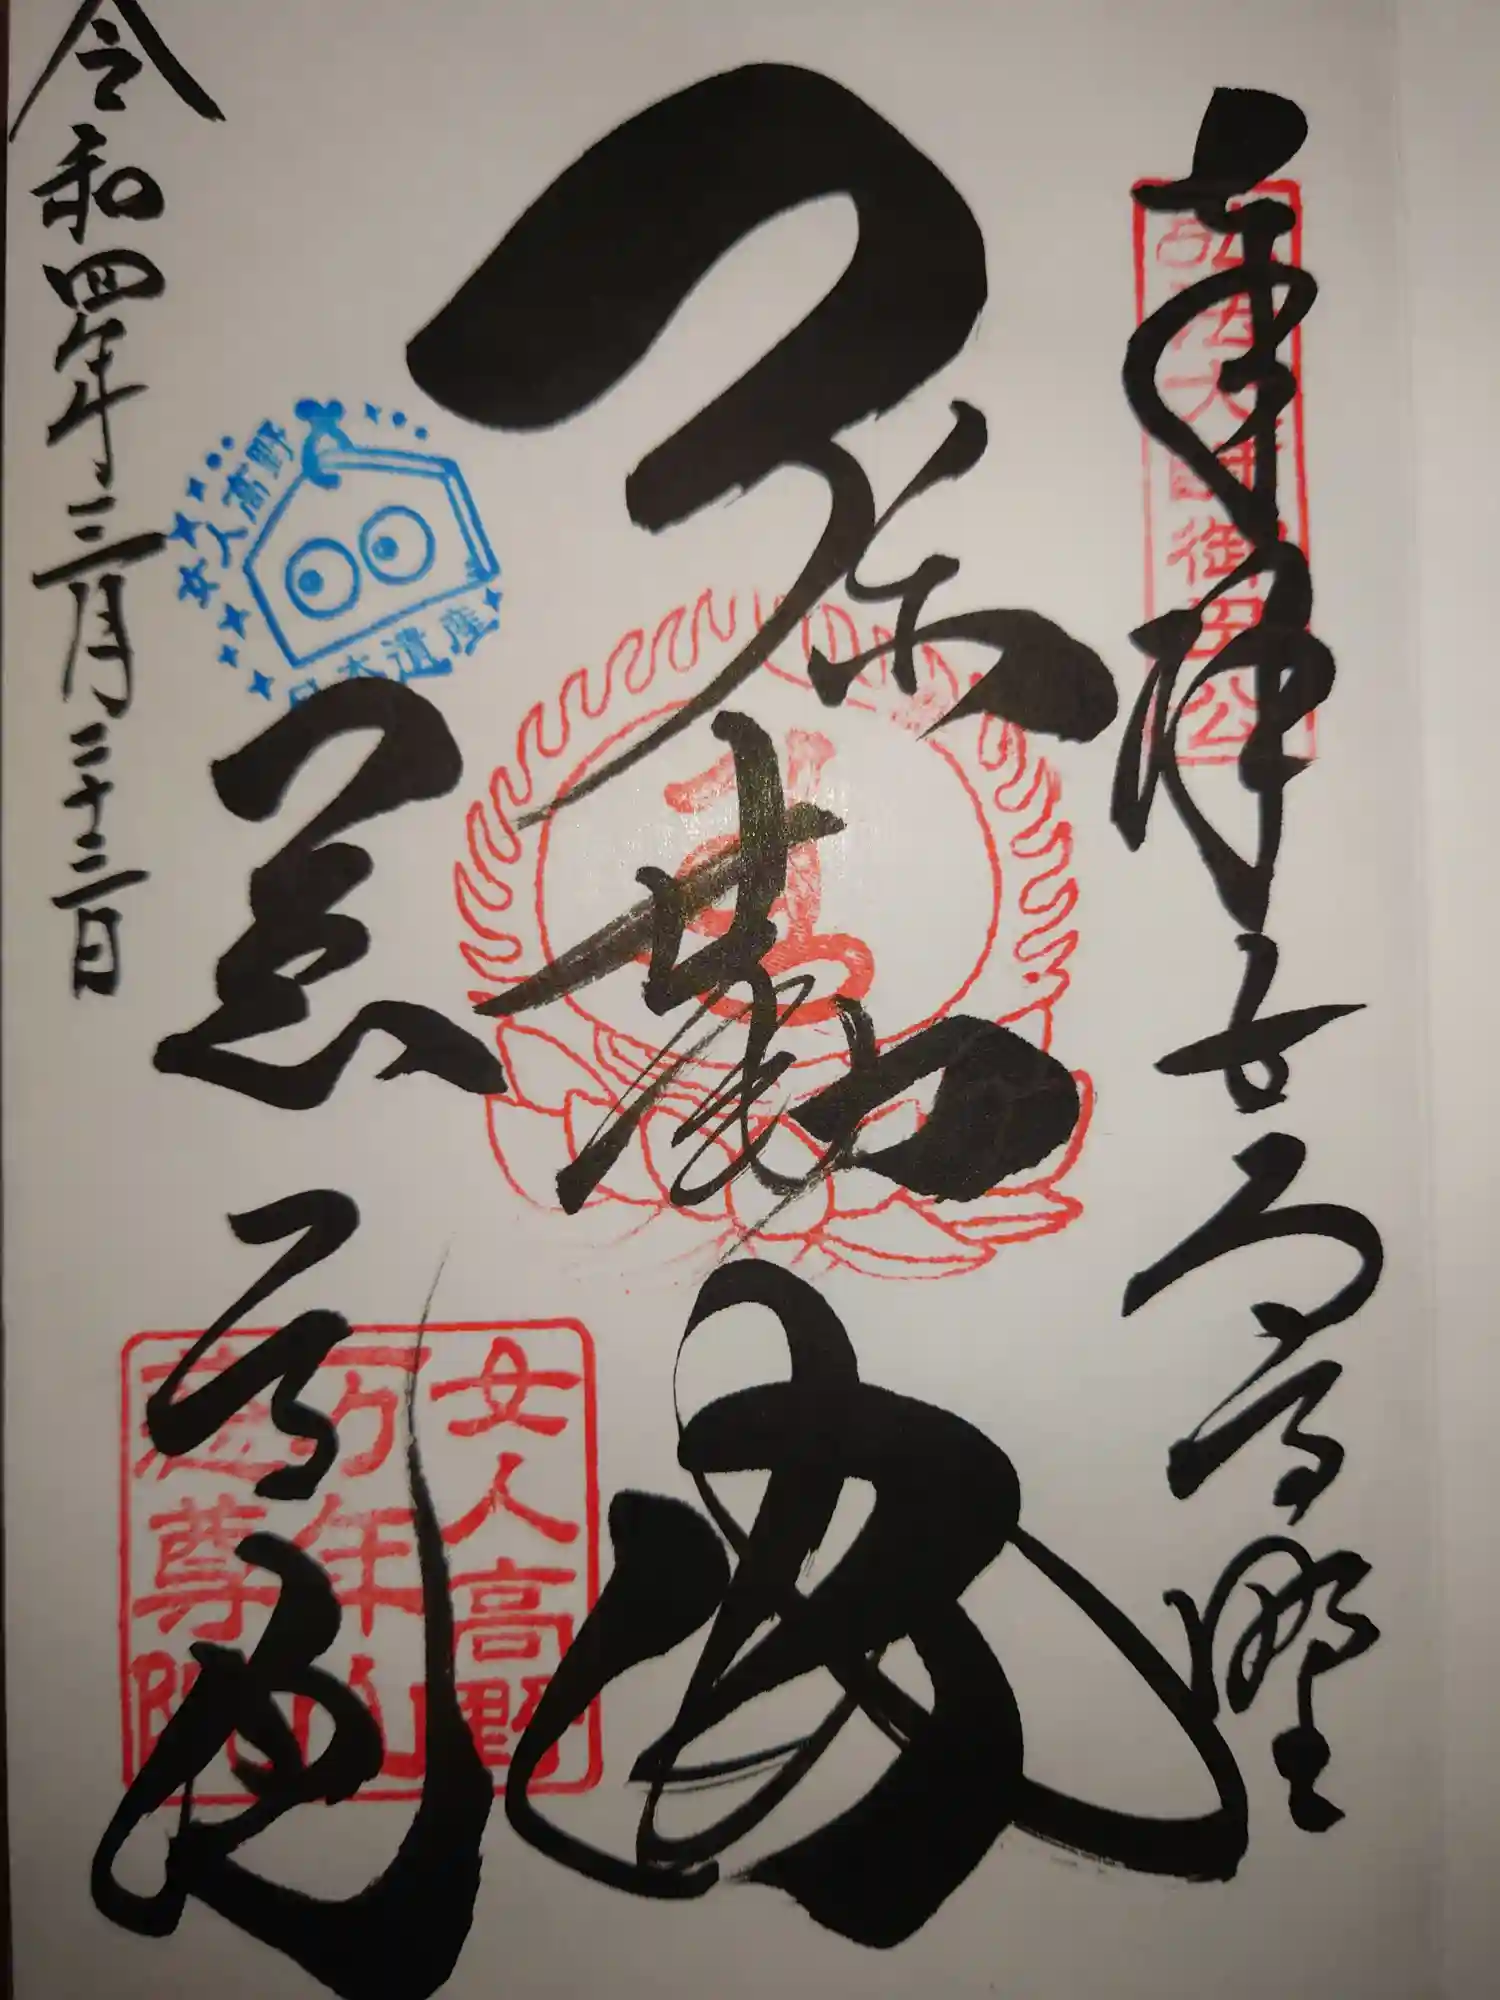 奉拝 女人高野
弘法大師御母公
弥勒佛
慈尊院
令和四年三月三十二日
女人高野
日本遺産
女人高野
万年山
慈尊院